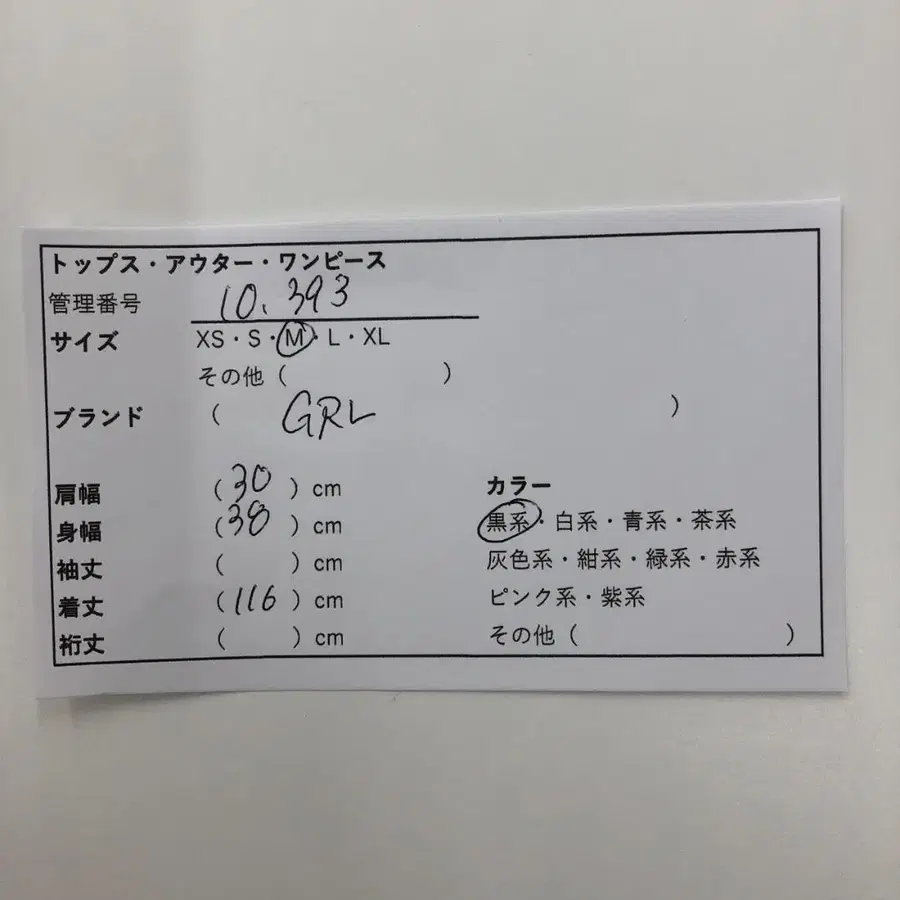 トップス・アウター・ワンピース
管理番号 10.393
サイズ XS・S・M・L・XL
その他（ ）
ブランド （ GRL ）
肩幅 （30）cm カラー
身幅 （38）cm 黒系・白系・青系・茶系
袖丈 （ ）cm 灰色系・紺系・緑系・赤系
着丈 （116）cm ピンク系・紫系
裄丈 （ ）cm その他（ ）